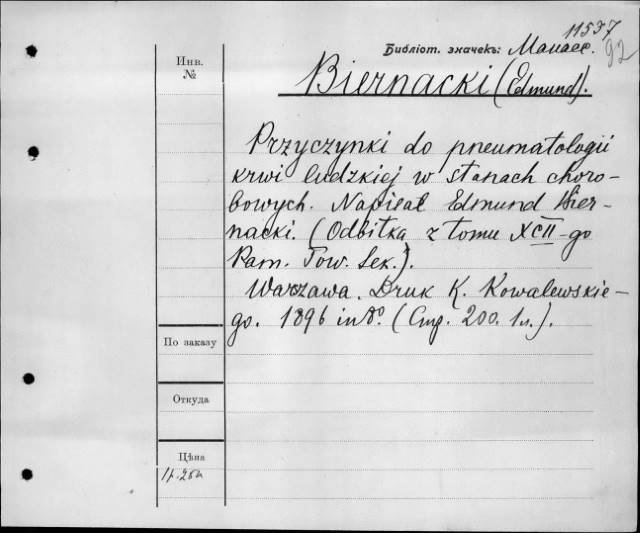 11537
92
Библіот. значекъ:
Инв.
№
Biernacki (Edmund).
Przyczynki do pneumatologii
krwi ludzkiej w stanach choro-
bowych. Napisał Edmund Bier-
nacki. (Odbitka z tomu XCII-go
Pam. Tow. Lek.).
Warszawa. Druk K. Kowalewskie-
go. 1896 in 8º. (Стр. 200. 1л.).
По заказу
Откуда
Цѣна